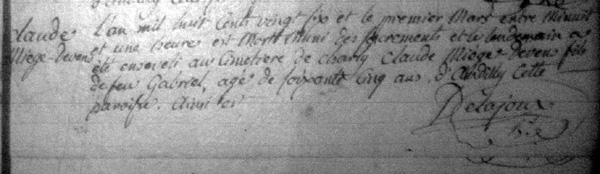 Claude
Miege-devens
L'an mil huit cents vingt six et le premier Mars entre Minuit
et une heure est Mort Muni des Sacrements et le lendemain a
été enseveli au Cimetière de charly Claude Miege-devens fils
de feu Gabriel, agé de soixante cinq ans, d'Andilly Cette
paroisse. Ainsi est
Delajoux